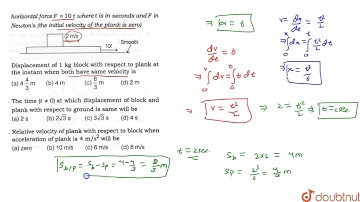 horizontal force F = 10 t where t is in seconds and F in
Newton's (the initial velocity of the plank is zero)
2 m/s
10t
Smooth
Displacement of 1 kg block with respect to plank at
the instant when both have same velocity is
(a) 4 4/3 m (b) 4 m (c) 8/3 m (d) 2 m
The time (t ≠ 0) at which displacement of block and
plank with respect to ground is same will be
(a) 2 s (b) 2√3 s (c) 3√3 s (d) 4 s
Relative velocity of plank with respect to block when
acceleration of plank is 4 m/s² will be
(a) zero (b) 10 m/s (c) 6 m/s (d) 8 m/s
S b/p = Sb - Sp = 4 - 4/3 = 8/3 m
⇒ a = t
dv/dt = t
⇒ ∫dv = ∫t dt
⇒ v = t²/2
v = dx/dt = t²/2
⇒ ∫dx = ∫t²/2 dt
⇒ x = t³/6
⇒ 2 = t²/2 ⇒ t = 2 sec.
t = 2 sec.
Sb = 2x2 = 4m
Sp = 2³/6 = 4/3 m
doubtnut